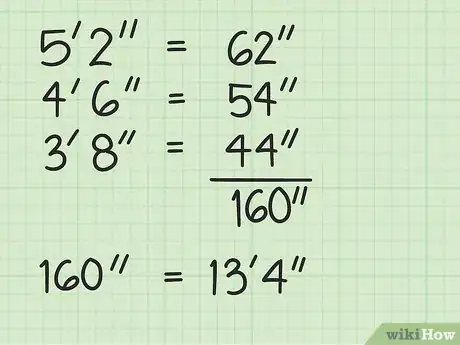 5′2″ = 62″
4′6″ = 54″
3′8″ = 44″
160″
160″ = 13′4″
wikiHow